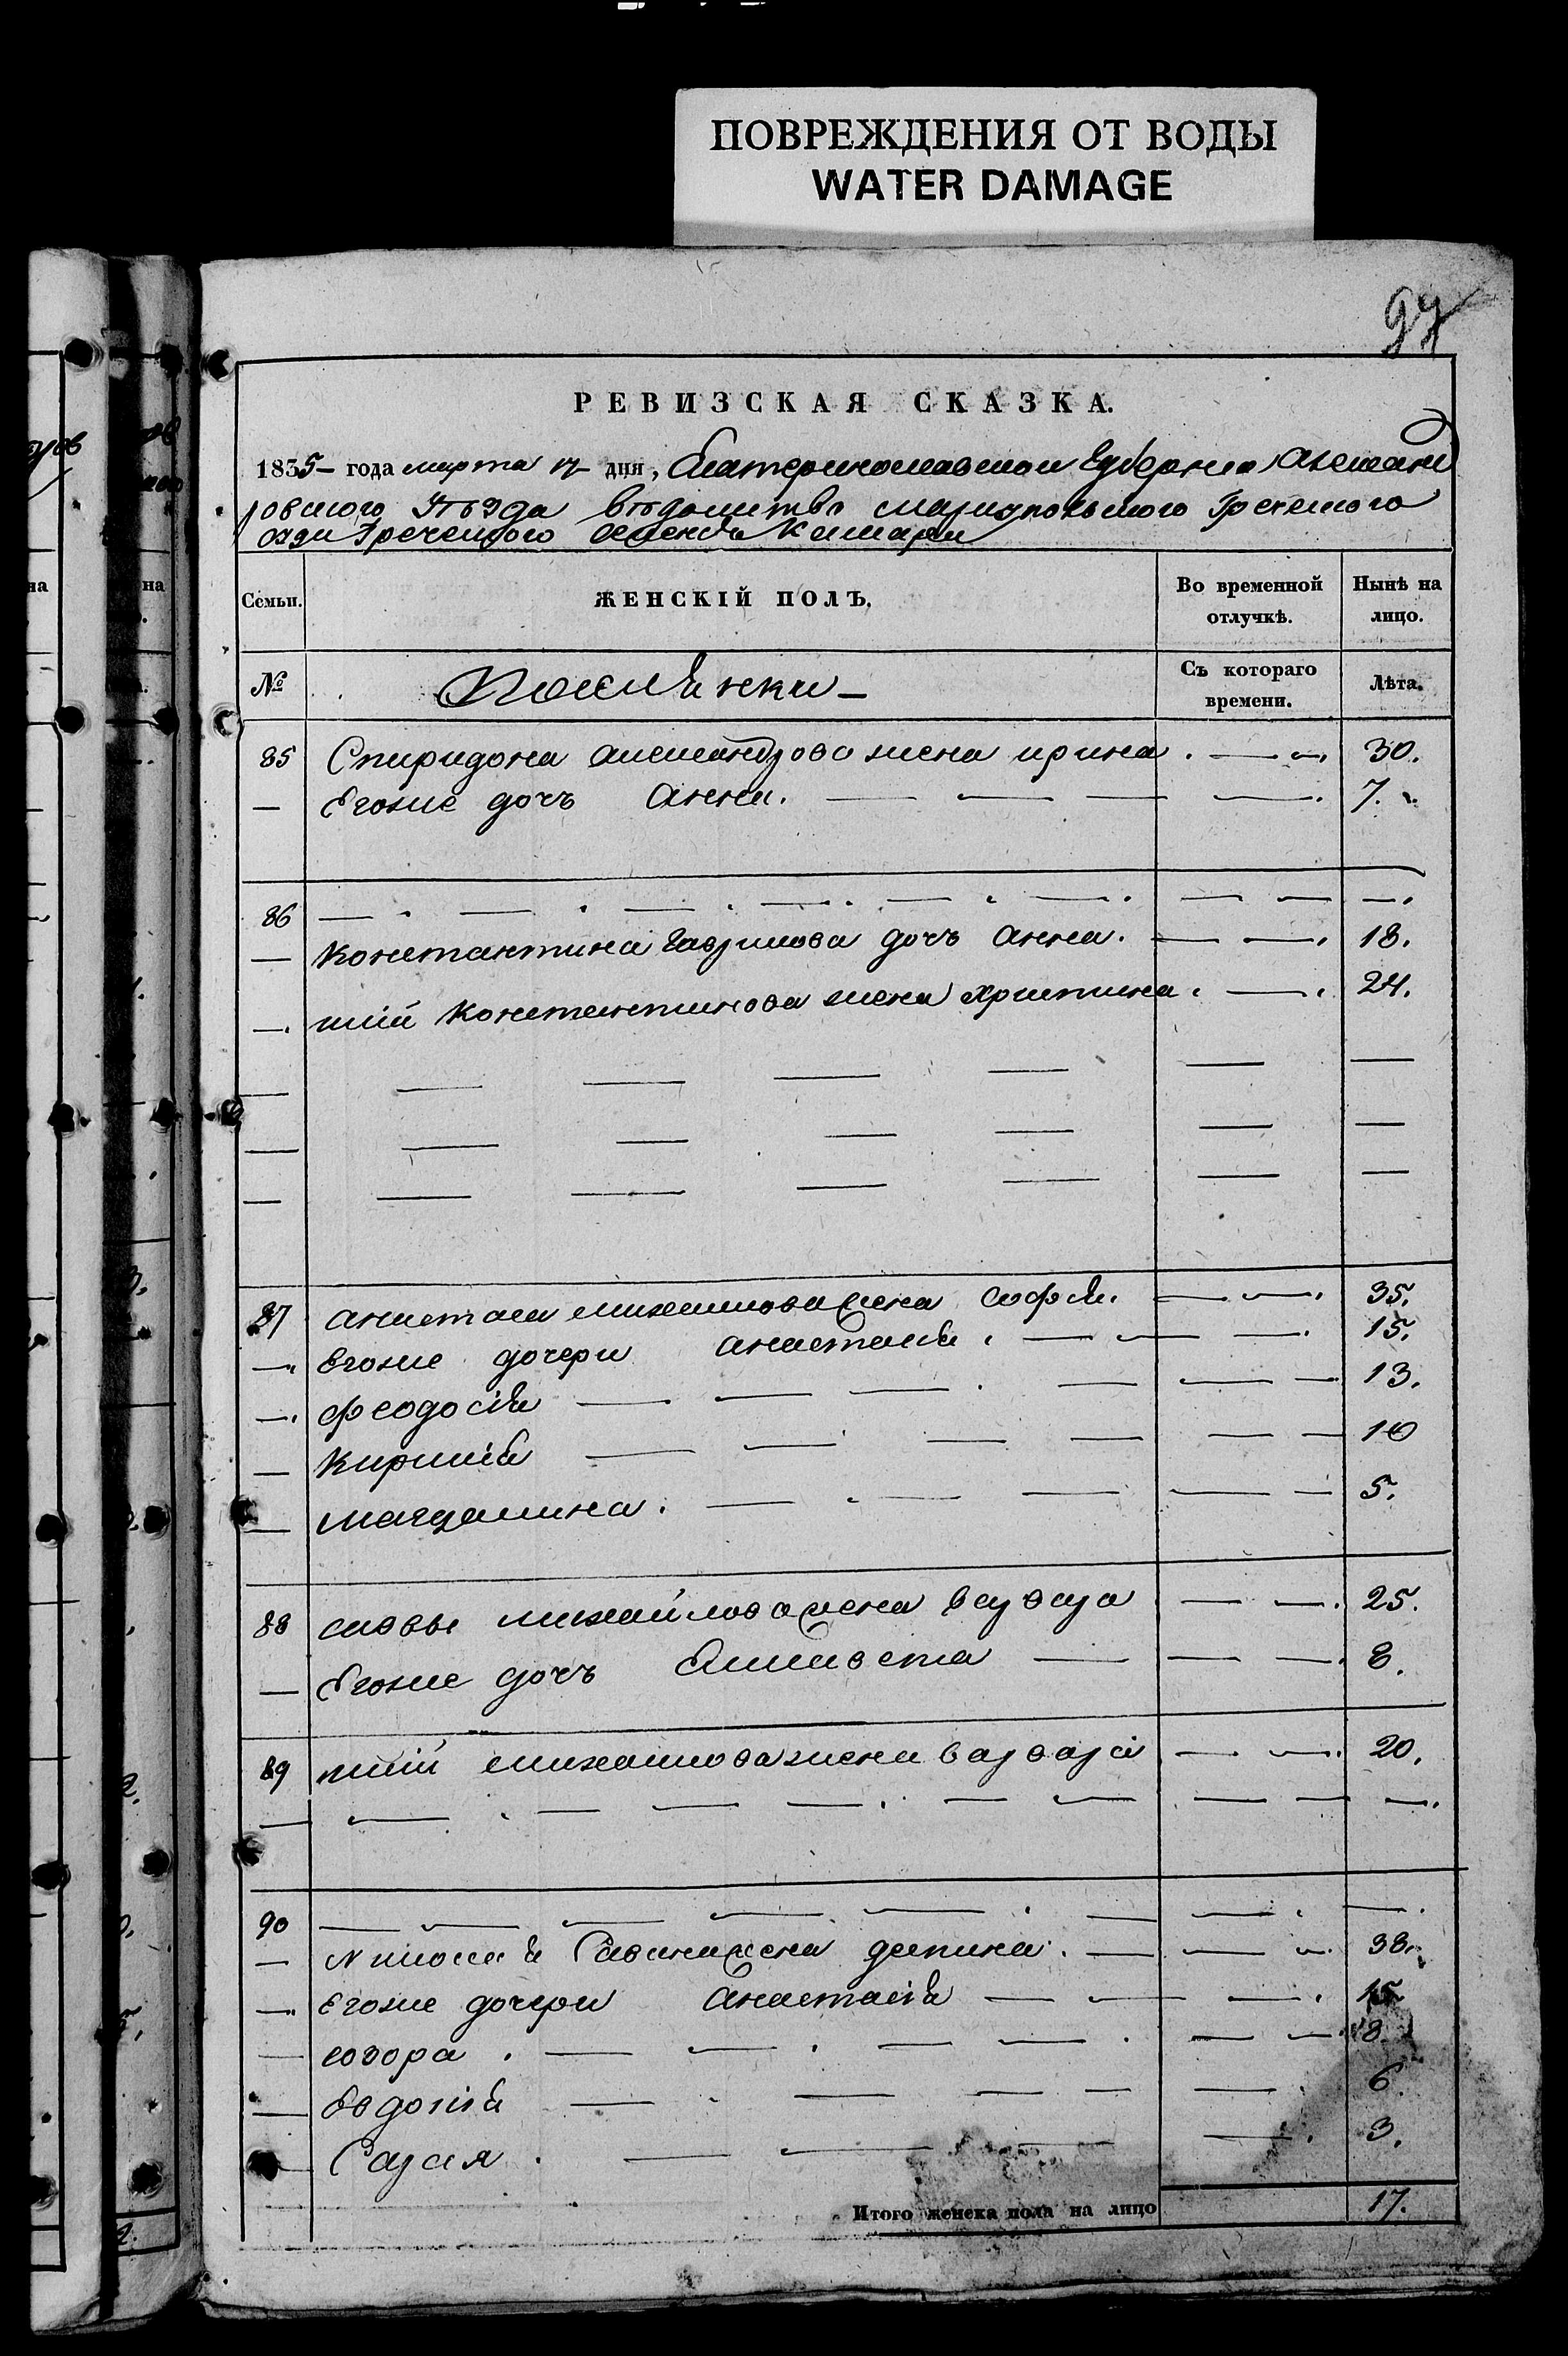 ПОВРЕЖДЕНИЯ ОТ ВОДЫ
WATER DAMAGE
97
РЕВИЗСКАЯ СКАЗКА.
1835 года марта 17 дня, Екатеринославской Губернии Александ
ровского Уезда ведомства Мариупольского Греческого
Греческого
Семьи. ЖЕНСКІЙ ПОЛЪ. Во временной отлучкѣ. Нынѣ на лицо.
№ Поселянки Съ котораго времени. Лѣта.
85 Спиридона Александрова жена ирина 30.
Егоже дочь Анна. 7.
86
Константина Гаврилова дочь Анна. 18.
илій Константинова жена Христина. 24.
87 Анастаса михайлова жена Софія. 35.
Егоже дочери Анастасія. 15.
Феодосія 13.
Кирикія 10
магдалина. 5.
88 савы михайлова жена варвара 25.
Егоже дочь Елисавета 8.
89 илій михайлова жена варвара 20.
90
Николая Савина жена депина. 38.
Егоже дочери Анастасія 15
ѳодора. 8
Евдокія 6.
Сарая. 3.
Итого женска пола на лицо 17.